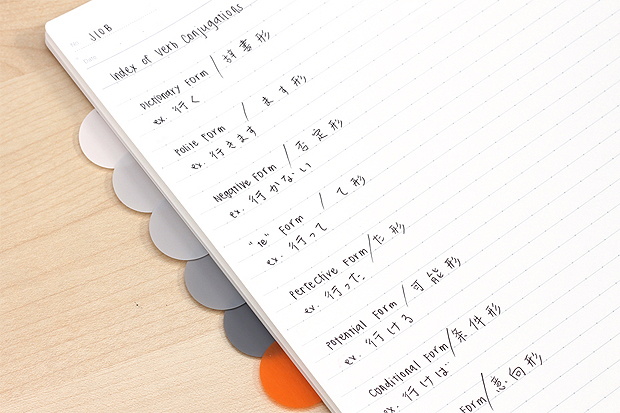 J10B
Index of Verb Conjugations
Dictionary Form / 辞書形
ex. 行く
Polite Form / ます形
ex. 行きます
Negative Form / 否定形
ex. 行かない
"Te" Form / て形
ex. 行って
Perfective Form / た形
ex. 行った
Potential Form / 可能形
ex. 行ける
Conditional Form / 条件形
ex. 行けば
Form / 意向形